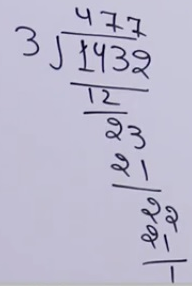 477
3 ) 1432
12
23
21
22
21
1